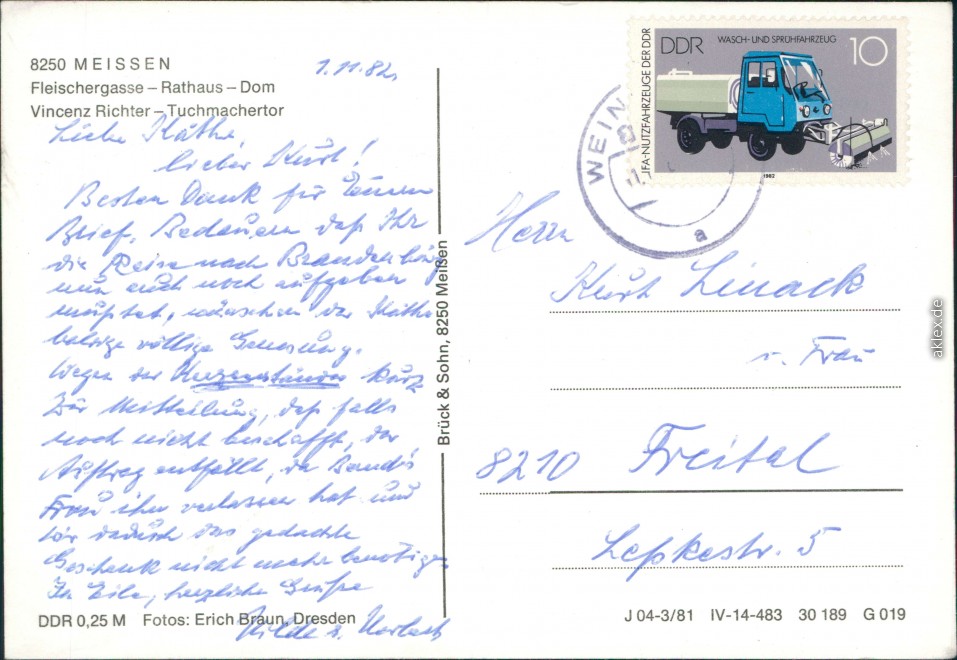 8250 MEISSEN
Fleischergasse – Rathaus – Dom
Vincenz Richter – Tuchmachertor
1.11.82.
Liebe Käthe,
lieber Kurt!
Besten Dank für Euren
Brief. Bedauern daß Ihr
die Reise nach Brandenburg
nun auch noch aufgeben
mußtet, wünschen der Käthe
völlige Genesung.
Wegen der kurz
zur Mitteilung, daß falls
noch nicht beschafft, der
Auftrag entfällt, da
Frau ihn verlassen hat und
wir dadurch das gedachte
Geschenk nicht mehr benötigen
In Eile, herzliche Grüße
Hilde u. Norbert
DDR 0,25 M Fotos: Erich Braun, Dresden
Brück & Sohn, 8250 Meißen
DDR
WASCH- UND SPRÜHFAHRZEUG
10
IFA-NUTZFAHRZEUGE DER DDR
1982
WEIN
a
Herrn
Kurt Linack
u. Frau
8210 Freital
Leßkestr. 5
J 04-3/81 IV-14-483 30 189 G 019
aklex.de